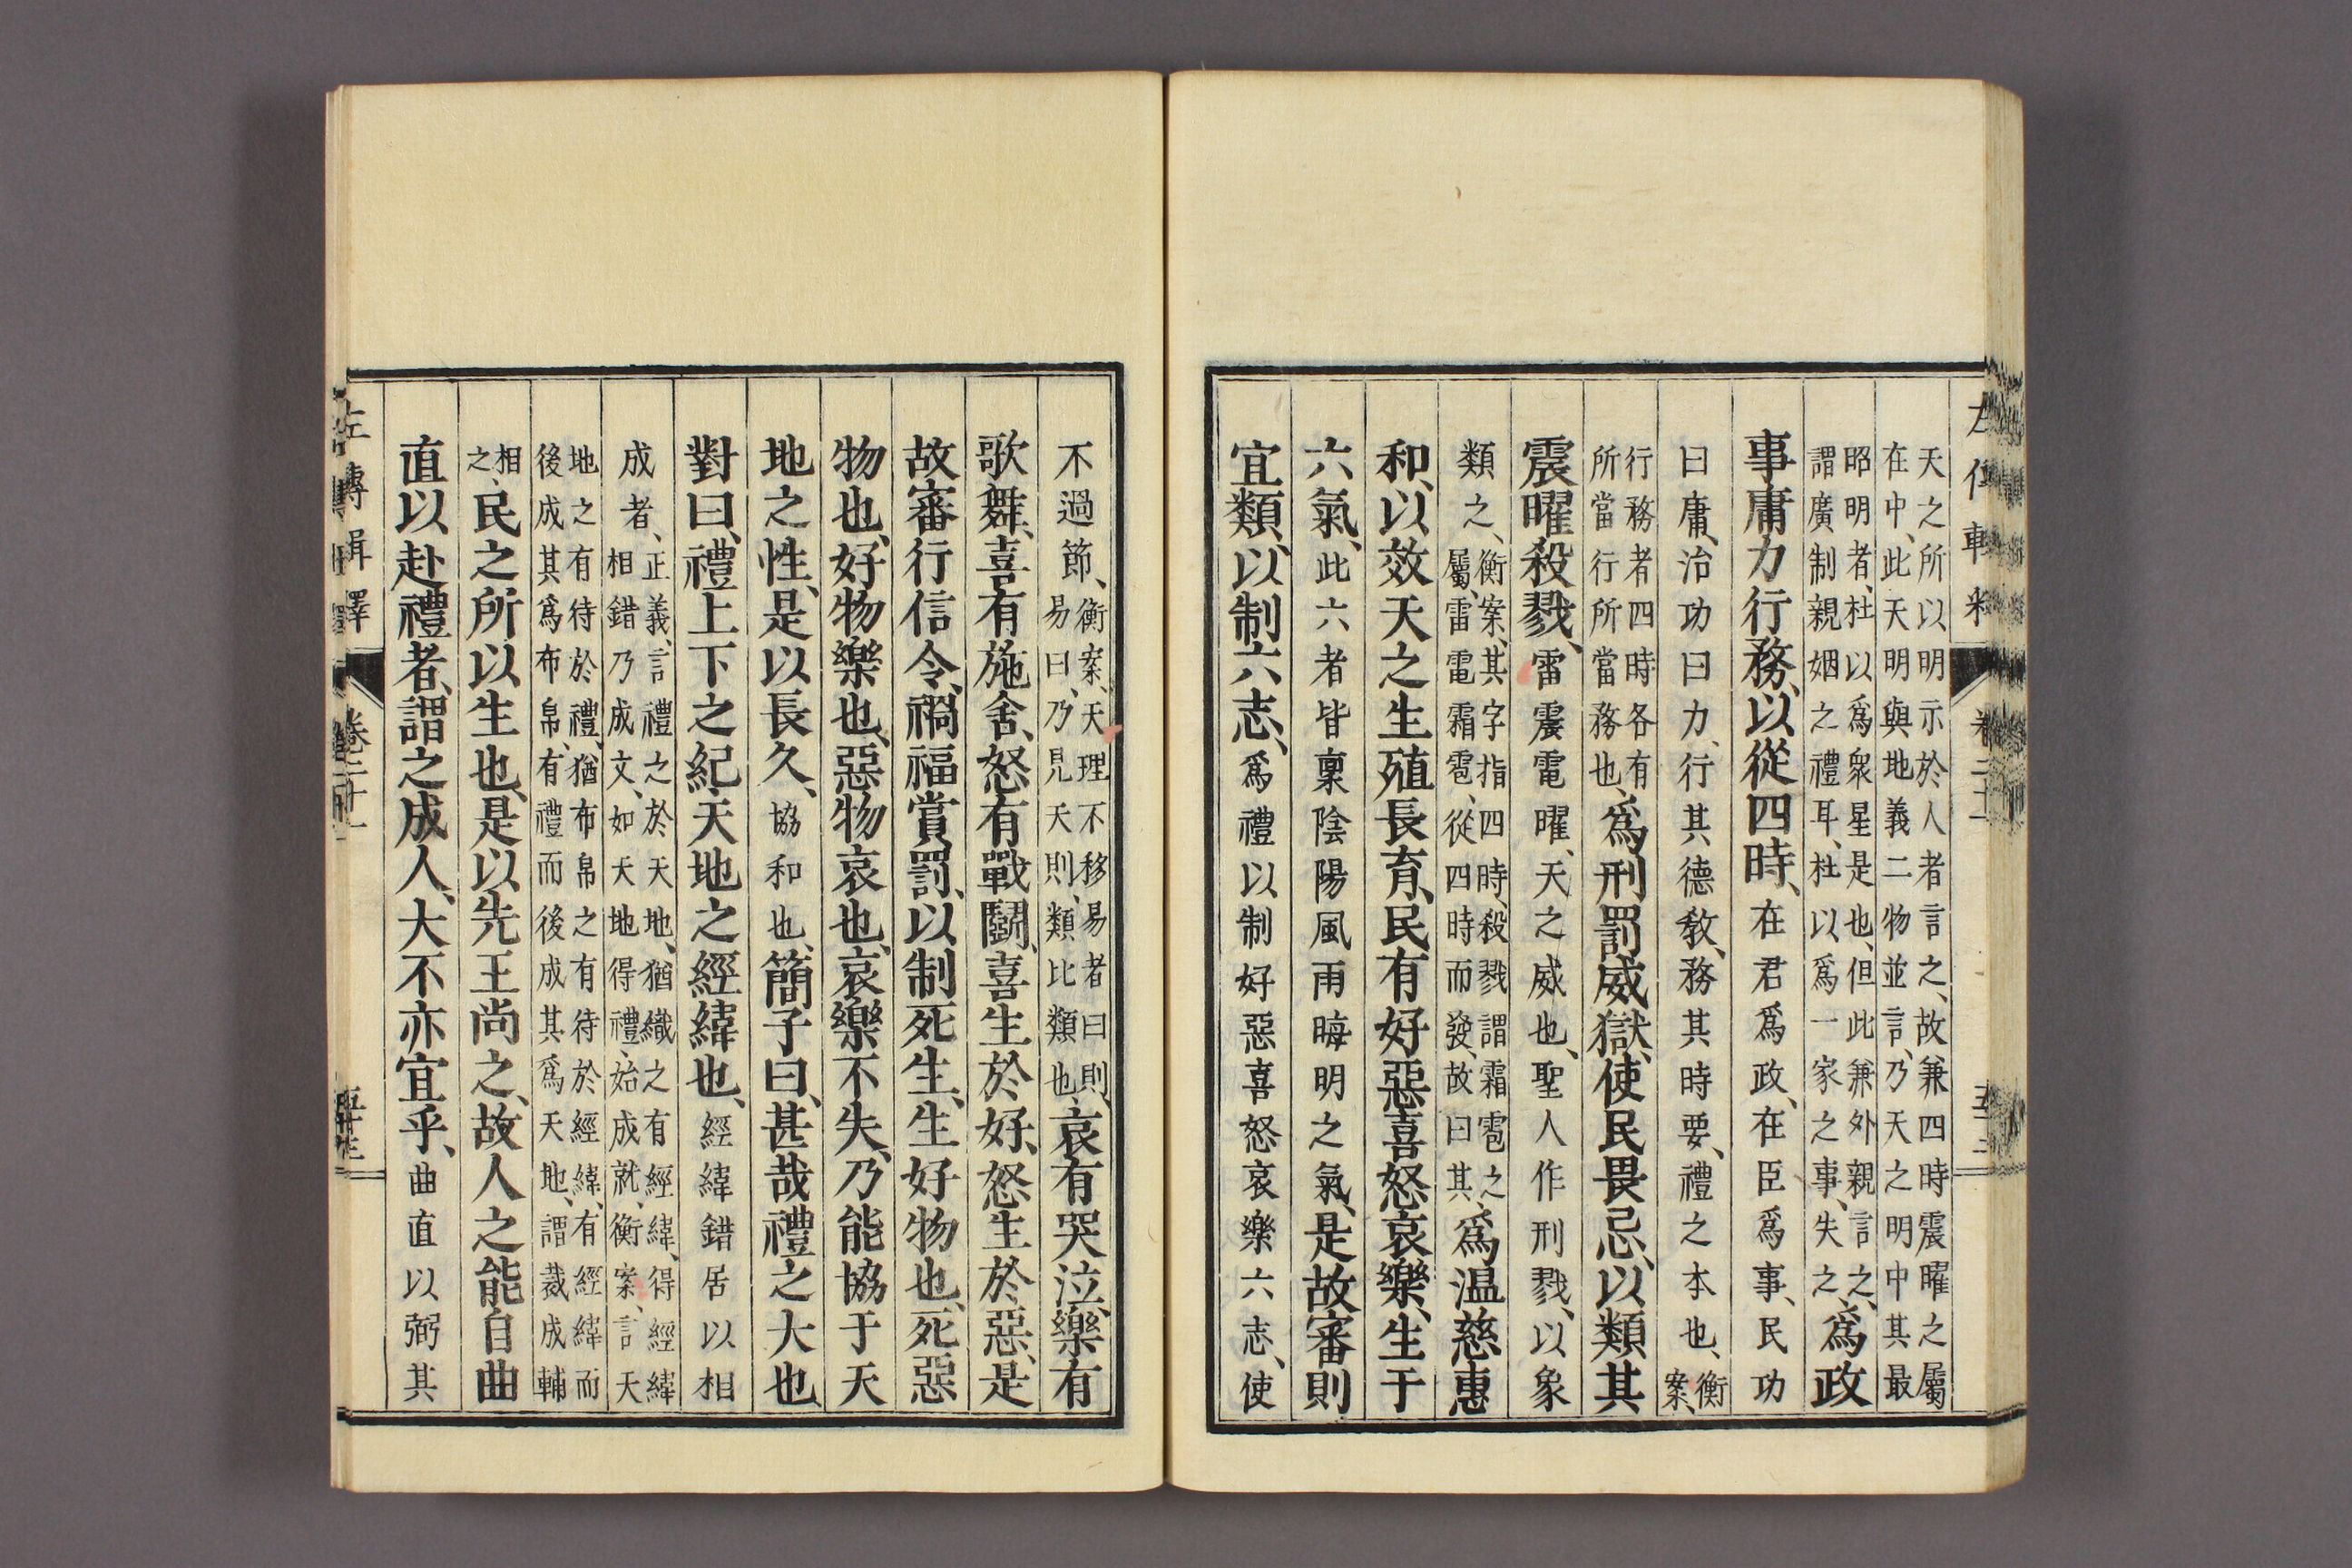 左傳輯釋 卷二十一
天之所以明示於人者言之、故兼四時震曜之屬
在中、此天明與地義二物並言、乃天之明中其最
昭明者、杜以爲衆星是也、但此兼外親言之、爲政
謂廣制親姻之禮耳、杜以爲一家之事、失之、
事庸力行務、以從四時、在君爲政、在臣爲事、民功
曰庸、治功曰力、行其德敎、務其時要、禮之本也、衡案、
行務者四時各有爲刑罰威獄、使民畏忌、以類其
所當行所當務也、
震曜殺戮、雷震電曜、天之威也、聖人作刑戮、以象
類之、衡案、其字指四時、殺戮謂霜雹之
屬、雷電霜雹、從四時而發、故曰其、爲温慈惠
和、以效天之生殖長育、民有好惡喜怒哀樂、生于
六氣、此六者皆稟陰陽風雨晦明之氣、是故審則
宜類、以制六志、爲禮以制好惡喜怒哀樂六志、使
不過節、衡案、天理不移易者曰則、哀有哭泣、樂有
易曰、乃見天則、類比類也、
歌舞、喜有施舍、怒有戰鬪、喜生於好、怒生於惡、是
故審行信令、禍福賞罰、以制死生、生好物也、死惡
物也、好物樂也、惡物哀也、哀樂不失、乃能協于天
地之性、是以長久、協和也、簡子曰、甚哉禮之大也、
對曰、禮上下之紀、天地之經緯也、經緯錯居以相
成者、正義、言禮之於天地、猶織之有經緯、得經緯
相錯乃成文、如天地得禮、始成就、衡案、言天
地之有待於禮、猶布帛之有待於經緯、有經緯而
後成其爲布帛、有禮而後成其爲天地、謂裁成輔
相之、民之所以生也、是以先王尚之、故人之能自曲
直以赴禮者、謂之成人、大不亦宜乎、曲直以弼其
左傳輯釋 卷二十一